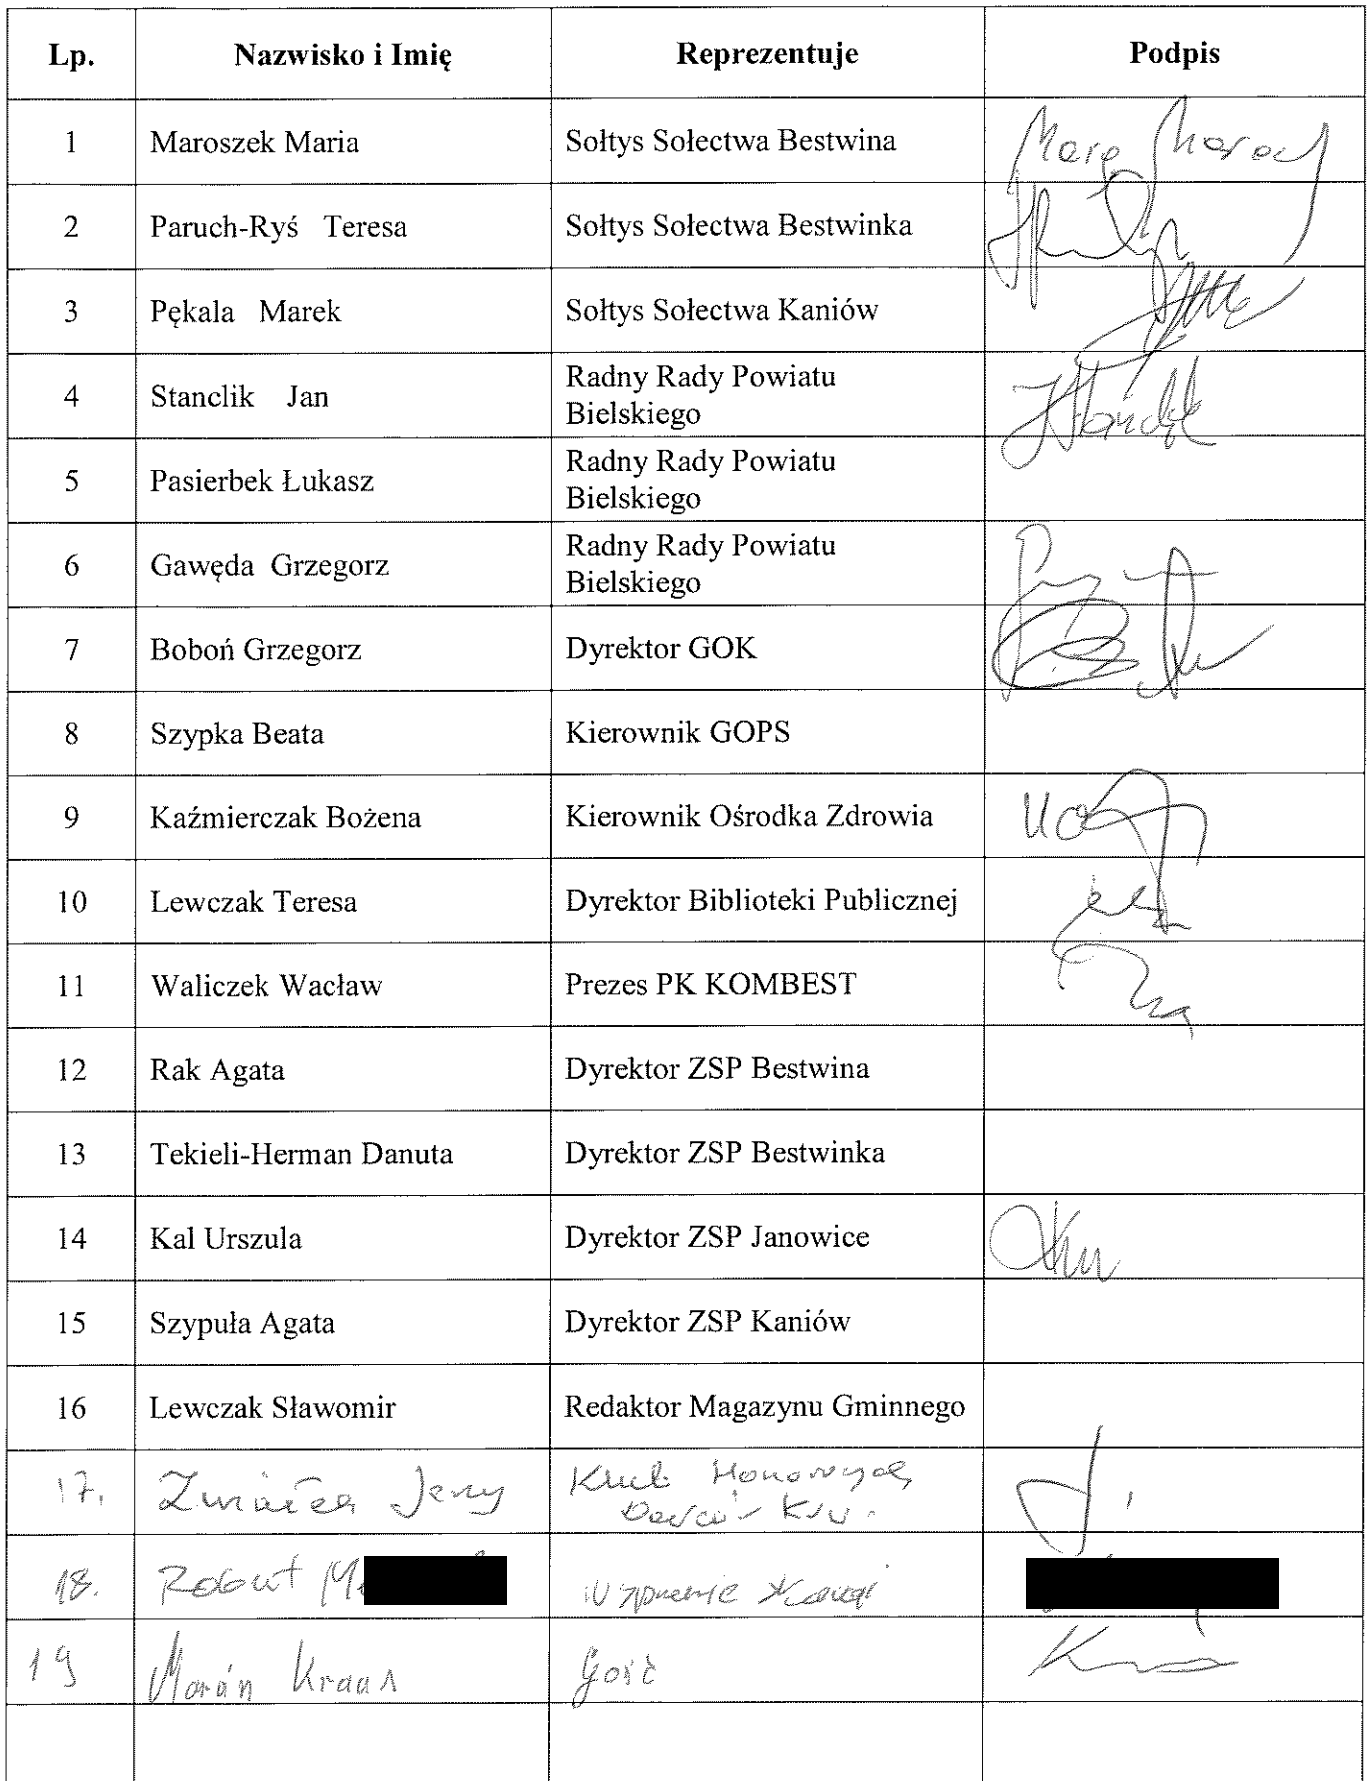 Lp. Nazwisko i Imię Reprezentuje Podpis
1 Maroszek Maria Sołtys Sołectwa Bestwina
2 Paruch-Ryś Teresa Sołtys Sołectwa Bestwinka
3 Pękala Marek Sołtys Sołectwa Kaniów
4 Stanclik Jan Radny Rady Powiatu
Bielskiego
5 Pasierbek Łukasz Radny Rady Powiatu
Bielskiego
6 Gawęda Grzegorz Radny Rady Powiatu
Bielskiego
7 Boboń Grzegorz Dyrektor GOK
8 Szypka Beata Kierownik GOPS
9 Kaźmierczak Bożena Kierownik Ośrodka Zdrowia
10 Lewczak Teresa Dyrektor Biblioteki Publicznej
11 Waliczek Wacław Prezes PK KOMBEST
12 Rak Agata Dyrektor ZSP Bestwina
13 Tekieli-Herman Danuta Dyrektor ZSP Bestwinka
14 Kal Urszula Dyrektor ZSP Janowice
15 Szypuła Agata Dyrektor ZSP Kaniów
16 Lewczak Sławomir Redaktor Magazynu Gminnego
17. Jerzy Klub Honorowych
18. Robert
19 Kraus Gość